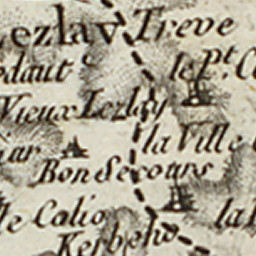 Lezlav Treve
le Pt. C
Vieux Lezlay
la Ville
Bon Secours
le Calio la
Kerbelu